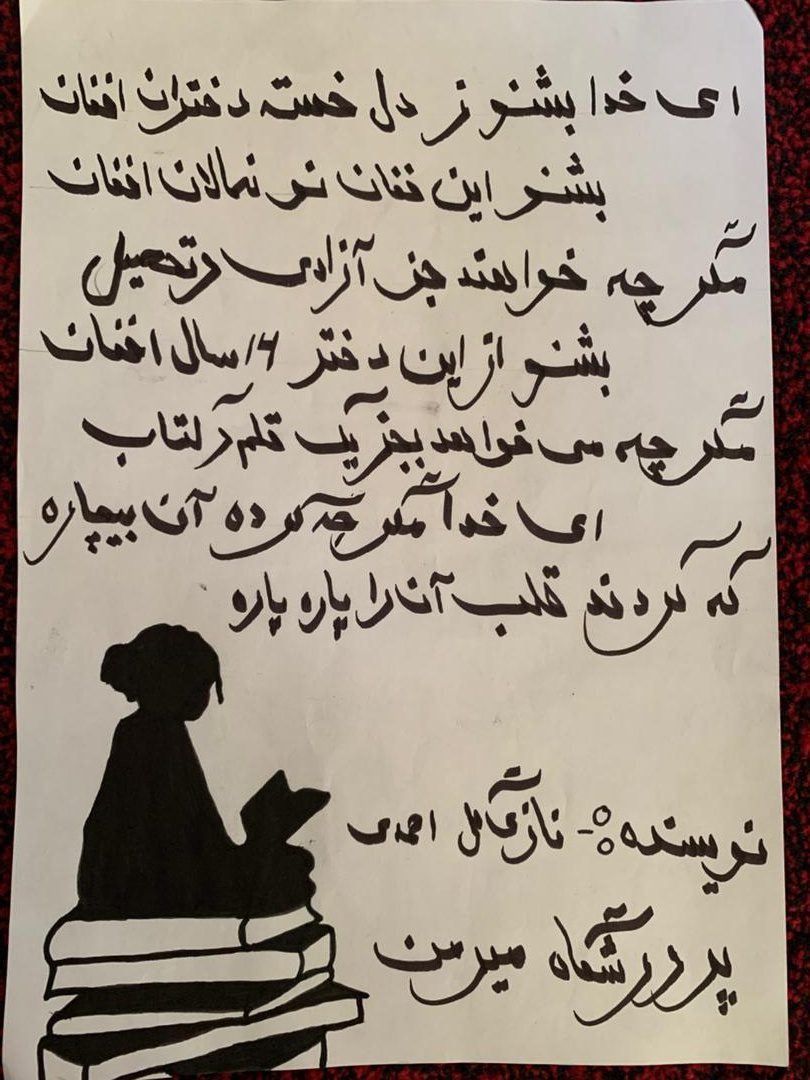 ای خدا بشنو ز دل خسته دختران افغان
بشنو این فغان نو نهالان افغان
مگر چه خواهند جز آزادی و تحصیل
بشنو از این دختر ۱۶ سال افغان
مگر چه می خواهد بجز یک قلم و کتاب
ای خدا مگر چه کرده آن بیچاره
که کردند قلب آنرا پاره پاره
نویسنده:- نازی گل احمدی
پرورشگاه میرمن